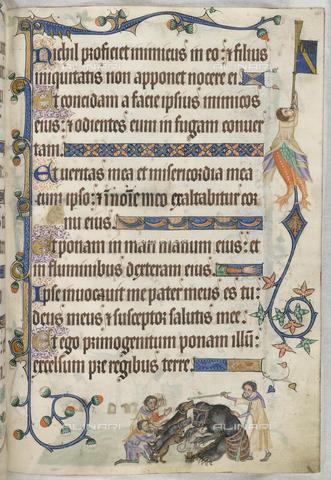 Nichil proficiet inimicus in eo: et filius
iniquitatis non apponet nocere ei.
Et concidam a facie ipsius inimicos
eius: et odientes eum in fugam conuer
tam.
Et ueritas mea et misericordia mea
cum ipso: et in noīe meo exaltabitur cor
nu eius.
Et ponam in mari manum eius: et
in fluminibus dexteram eius.
Ipse inuocauit me pater meus es tu:
deus meus et susceptor salutis mee.
Et ego primogenitum ponam illū:
excelsum pre regibus terre.
ALINARI
ALINARI